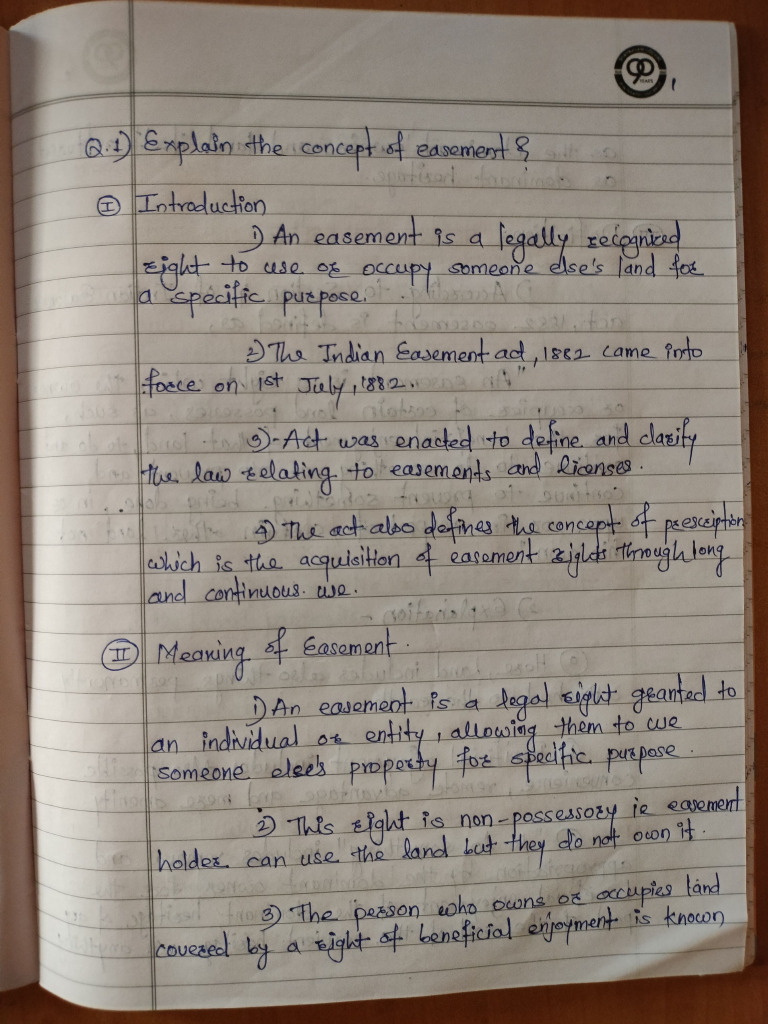 90
YEARS
1
Q.1) Explain the concept of easement ?
I Introduction
1) An easement is a legally recognized
right to use or occupy someone else's land for
a specific purpose.
2) The Indian Easement act, 1882 came into
force on 1st July, 1882.
3) Act was enacted to define and clarify
the law relating to easements and licenses.
4) The act also defines the concept of prescription
which is the acquisition of easement rights through long
and continuous use.
II Meaning of Easement.
1) An easement is a legal right granted to
an individual or entity, allowing them to use
someone else's property for specific purpose.
2) This right is non-possessory ie easement
holder can use the land but they do not own it.
3) The person who owns or occupies land
covered by a right of beneficial enjoyment is known